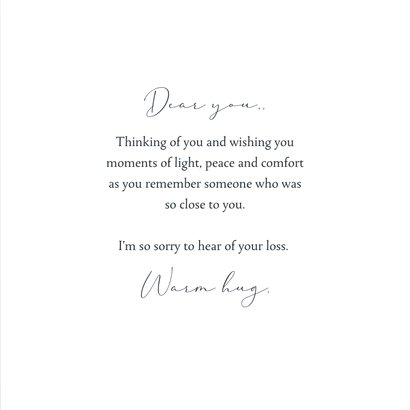 Dear you..
Thinking of you and wishing you
moments of light, peace and comfort
as you remember someone who was
so close to you.
I'm so sorry to hear of your loss.
Warm hug,